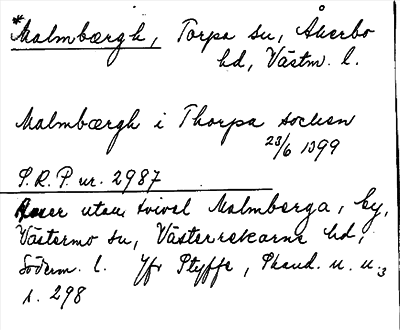 *Malmbærgh, Torpa sn, Åkerbo
hd, Västm. l.
Malmbærgh i Thorpa socken
23/6 1399
S.R.P. nr. 2987
Avser utan tvivel Malmberga, by,
Västermo sn, Västerrekarne hd,
Söderm. l. Jfr Styffe, Skand. u. u.3
s. 298